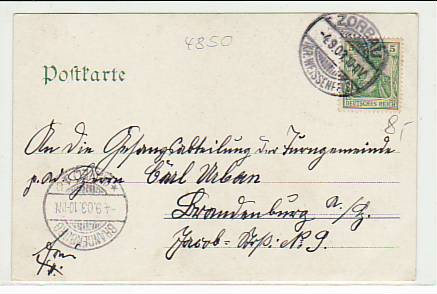 4850
ZORBAU
-4.9.03.
KR. WEISSENFELS
5
DEUTSCHES REICH
8,-
Postkarte
An die Gesangsabteilung der Turngemeinde
p. ad. Herrn Carl Urban
Brandenburg a/H.
Jacob-Str. N. 9.
BRANDENBURG
-4.9.03.10-11N